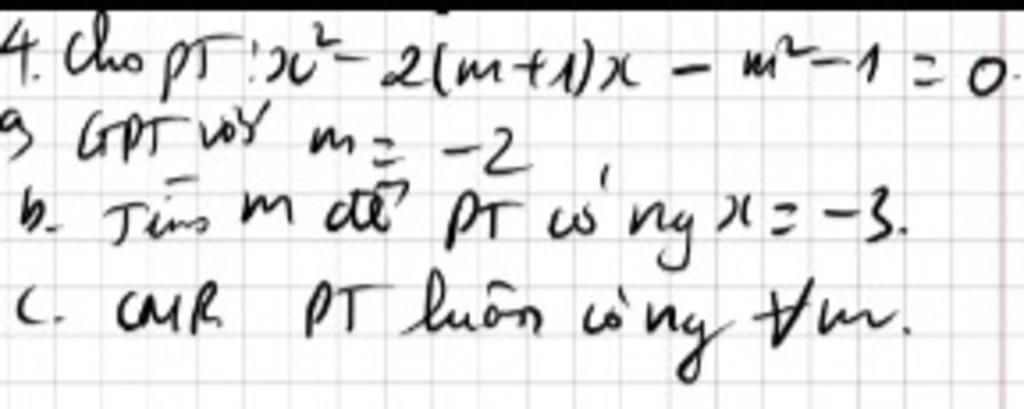 4. Cho PT: x² - 2(m+1)x - m² - 1 = 0.
a, GPT với m = -2
b. Tìm m để PT có ng x = -3.
c. CMR PT luôn có ng ∀m.